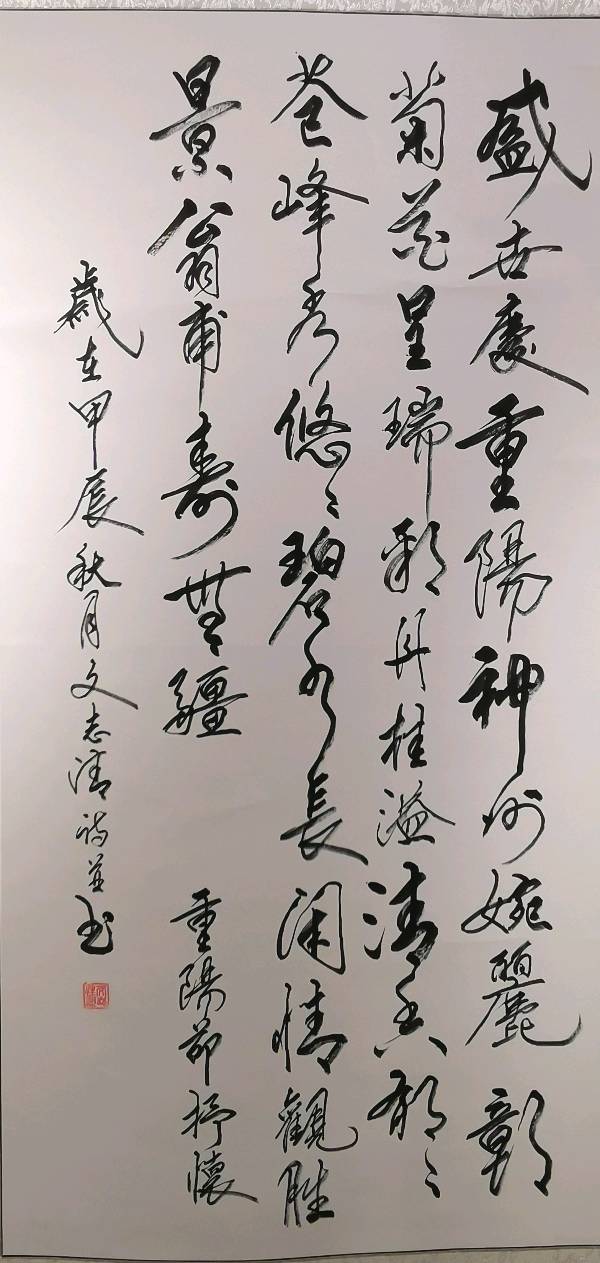 盛世慶重陽神州婉麗彰
菊花呈瑞彩丹桂溢清香郁〻
苍峰秀悠〻碧水長闲情觀胜
景翁甫壽無疆
重陽节抒懷
歲在甲辰秋月文志清诗並书